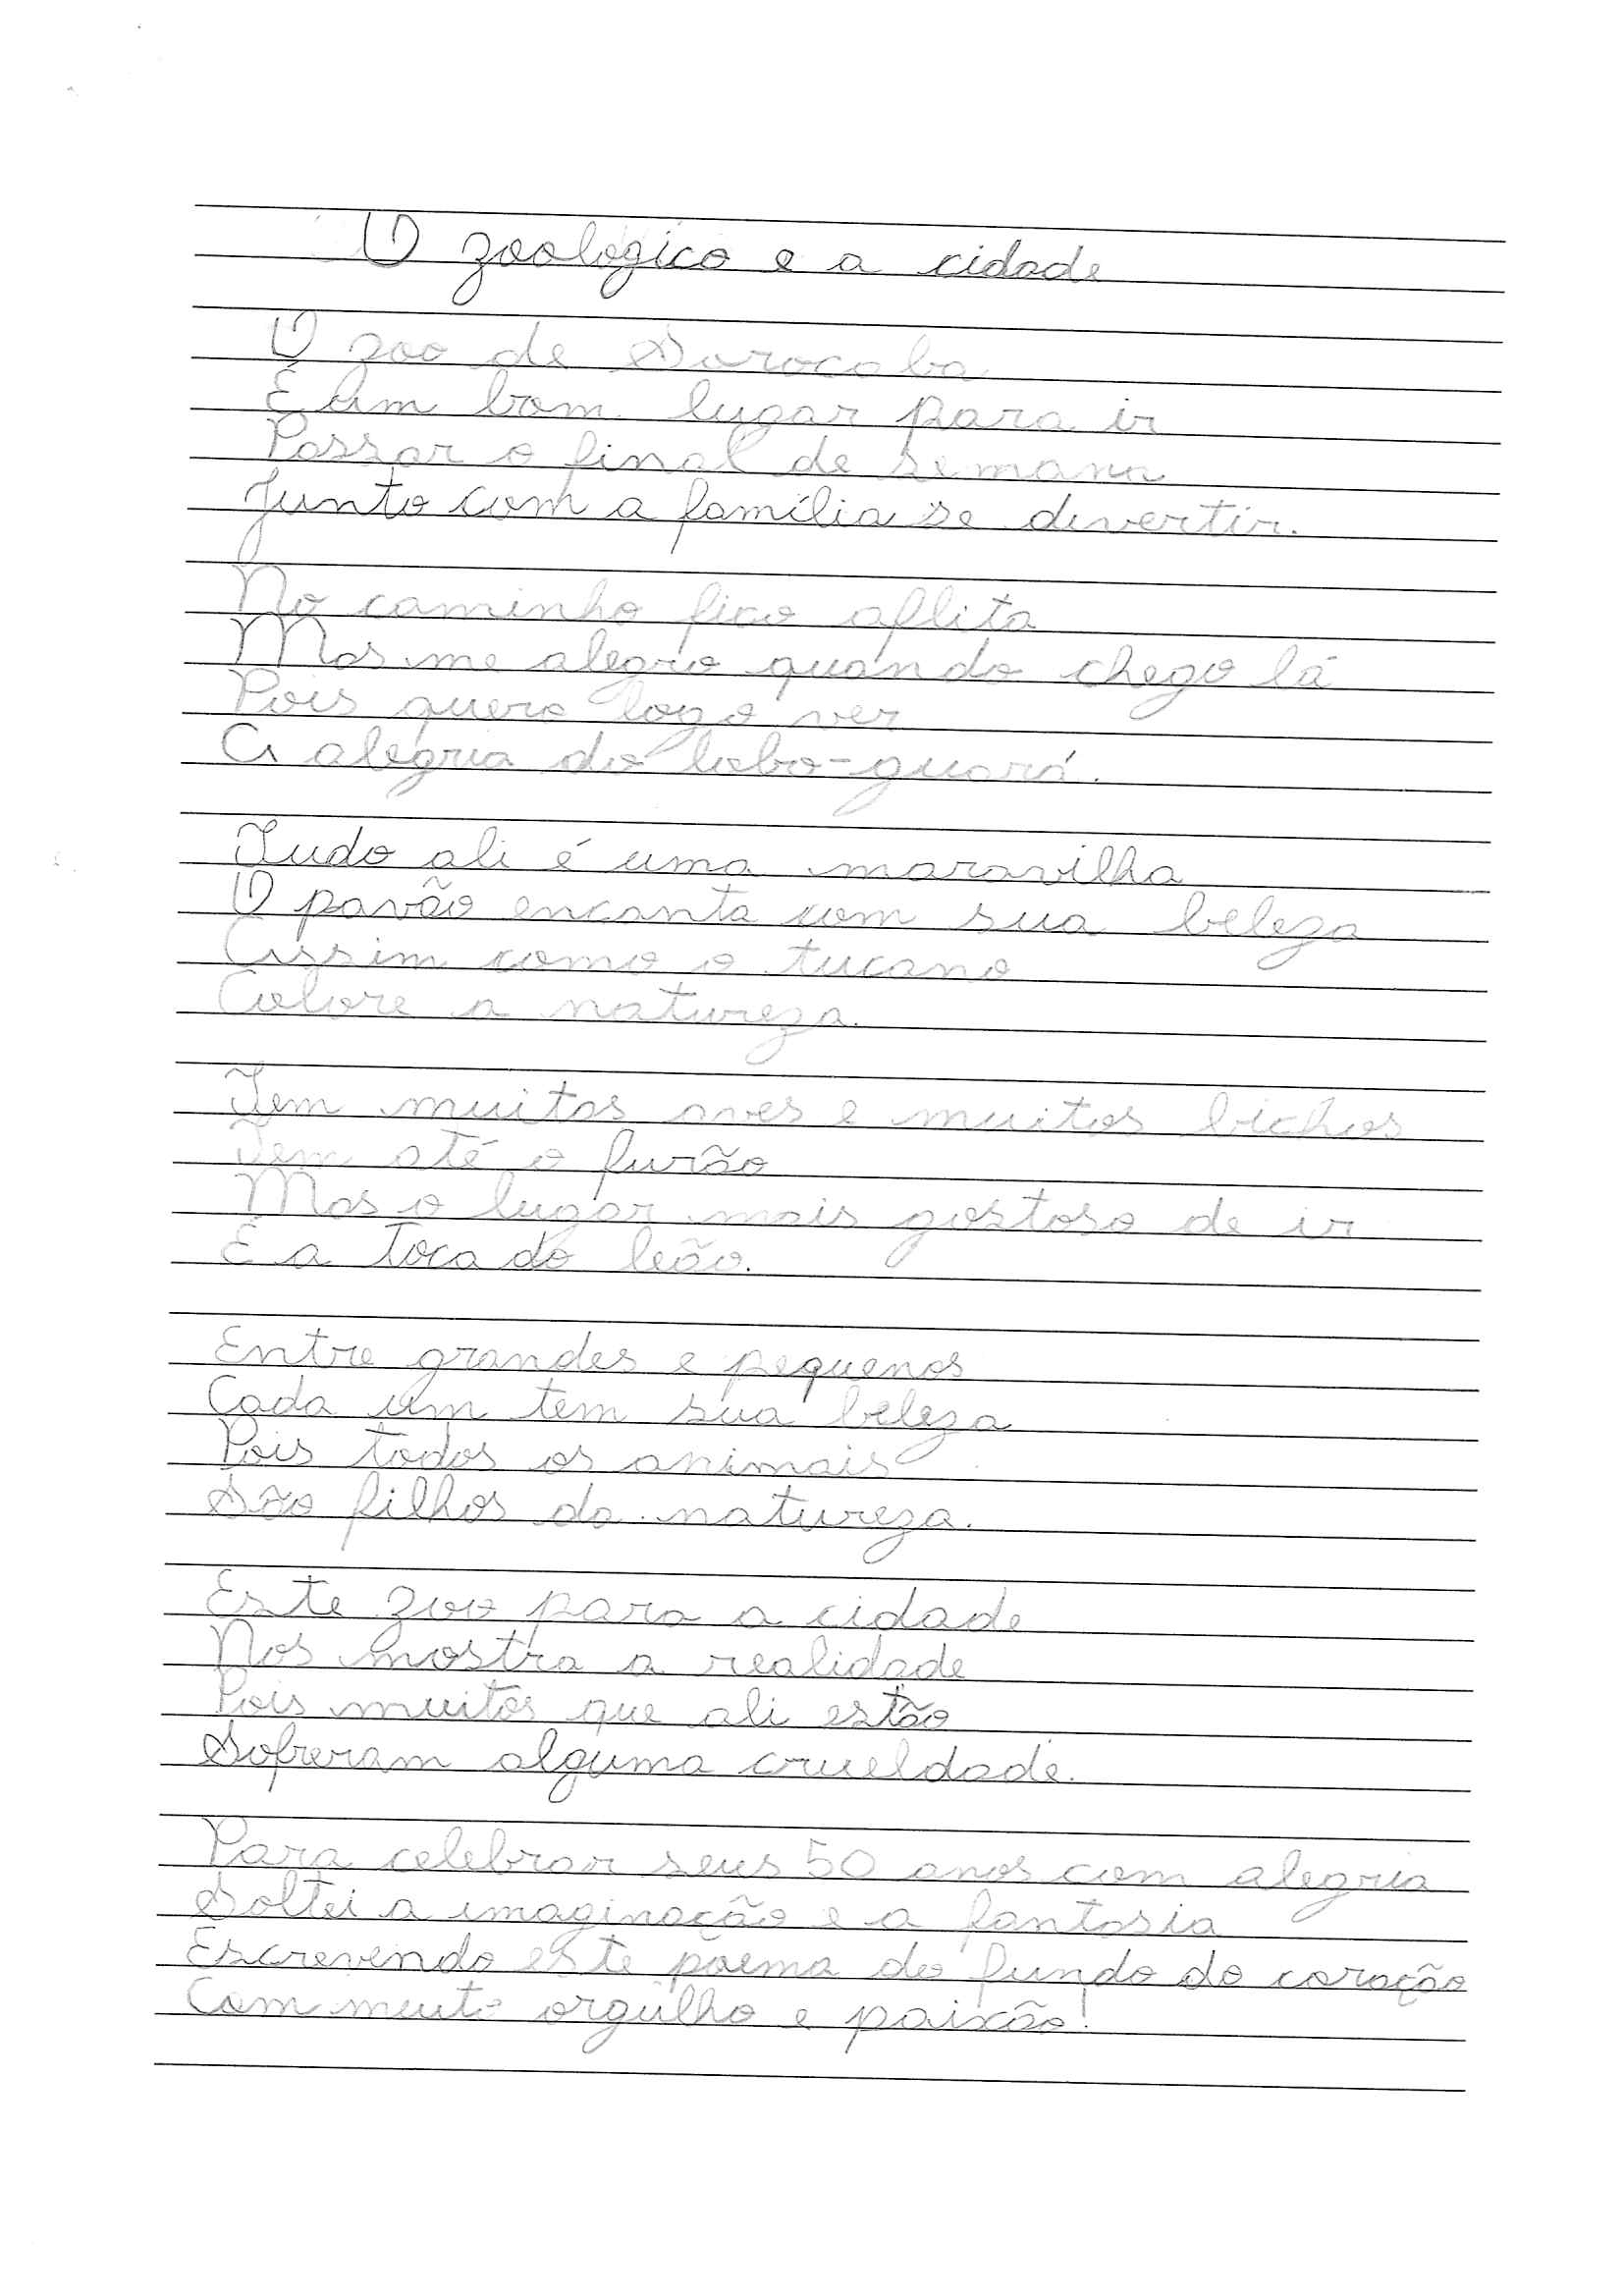 O zoológico e a cidade
O zoo de Sorocaba
É um bom lugar para ir
Passar o final de semana
Junto com a família se divertir.
No caminho fico aflita
Mas me alegro quando chego lá
Pois quero logo ver
A alegria do lobo-guará.
Tudo ali é uma maravilha
O pavão encanta com sua beleza
Assim como o tucano
Colore a natureza.
Tem muitas aves e muitos bichos
Tem até o furão
Mas o lugar mais gostoso de ir
É a toca do leão.
Entre grandes e pequenos
Cada um tem sua beleza
Pois todos os animais
São filhos da natureza.
Este zoo para a cidade
Nos mostra a realidade
Pois muitos que ali estão
Sofreram alguma crueldade.
Para celebrar seus 50 anos com alegria
Soltei a imaginação e a fantasia
Escrevendo este poema do fundo do coração
Com muito orgulho e paixão!